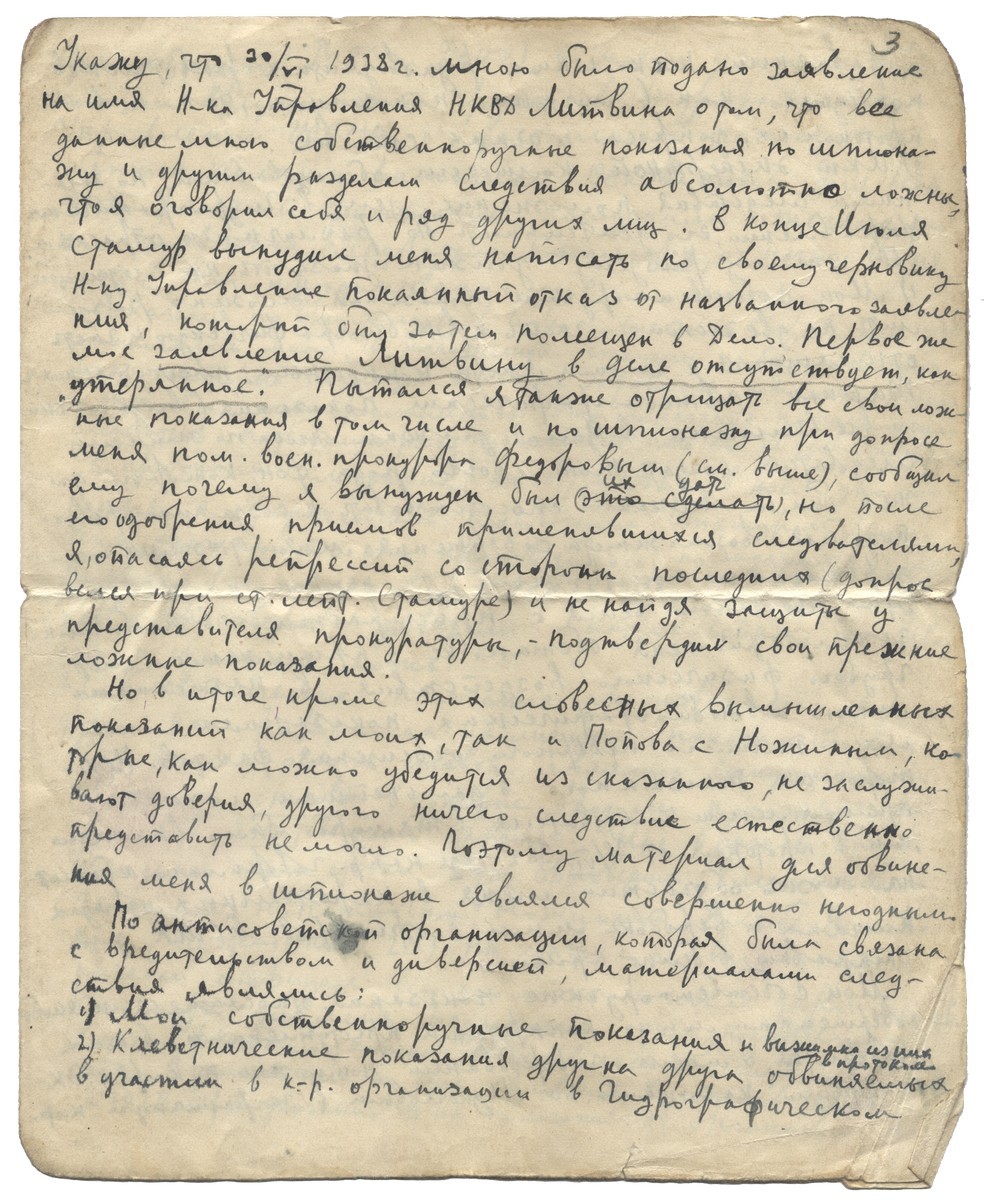 3
Укажу, что 30/VI 1938 г. мною было подано заявление
на имя Н-ка Управления НКВД Литвина о том, что все
данные мною собственноручные показания по шпиона-
жу и другим разделам следствия абсолютно ложны,
что я оговорил себя и ряд других лиц. В конце Июля
Стамур вынудил меня написать по своему черновику
Н-ку Управление покаянный отказ от названного заявле-
ния, который был затем помещен в Дело. Первое же
мое заявление Литвину в деле отсутствует, как
"утерянное". Пытался я также отрицать все свои лож-
ные показания в том числе и по шпионажу при допросе
меня пом. воен. прокурора Федоровым (см. выше), сообщил
ему почему я вынужден был их дать (это сделать), но после
его одобрения приемов применявшихся следователями,
я, опасаясь репрессий со стороны последних (допрос
велся при ст. лейт. Стамуре) и не найдя защиты у
представителя прокуратуры, - подтвердил свои прежние
ложные показания.
Но в итоге, кроме этих словесных вымышленных
показаний как моих, так и Попова с Ножиным, ко-
торые, как можно убедится из сказанного, не заслужи-
вают доверия, другого ничего следствие естественно
представить не могло. Поэтому материал для обвине-
ния меня в шпионаже являлся совершенно негодным.
По антисоветской организации, которая была связана
с вредительством и диверсией, материалами след-
ствия являлись:
1) Мои собственноручные показания и выжимка из них
в протоколе
2) Клеветнические показания друг на друга обвиняемых
в участии в к-р. организации в Гидрографическом